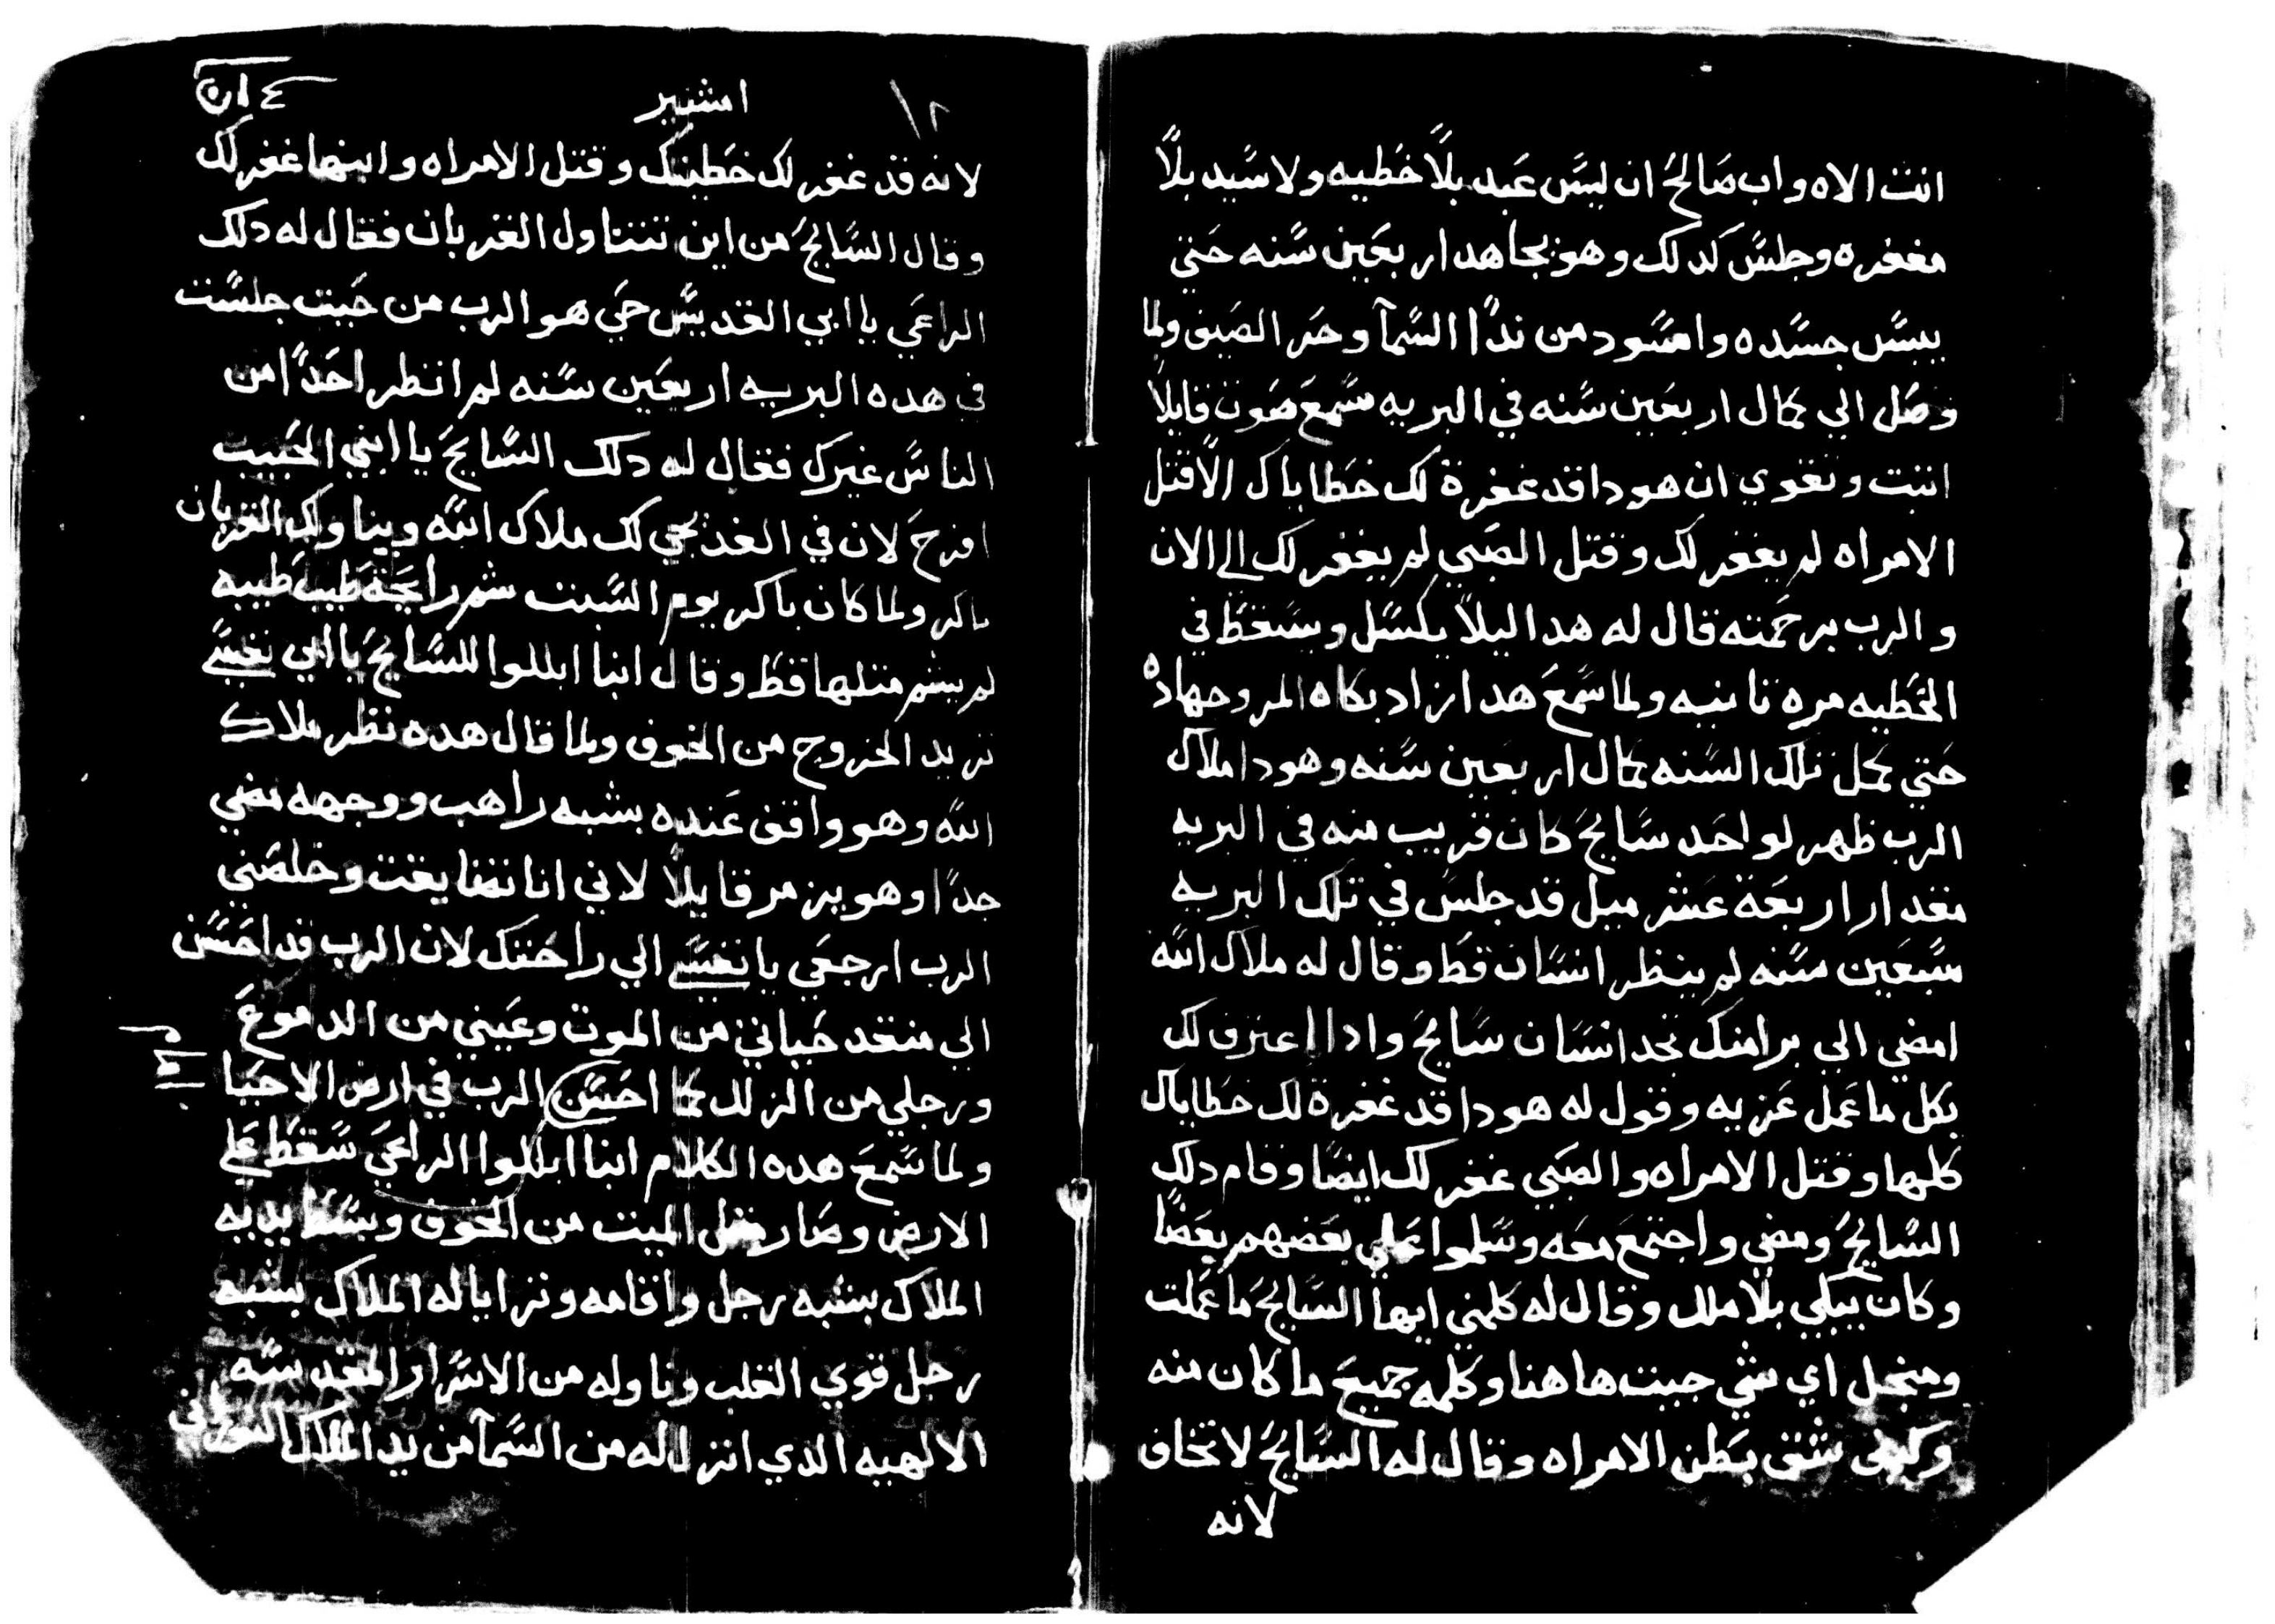 انت الاه واب صالح ان ليس عبد بلا خطيه ولا سيد بلا
مغفره وجلس كدلك وهو يجاهد اربعين سنه حتي
يبس جسده واسود من ندا السمآ وحر الصيف ولما
وصل الي كمال اربعين سنه في البريه سمع صوت قايلا
اتبت وتقوي ان هودا قد غفرة لك خطاياك الا قتل
الامراه لم يغفر لك وقتل الصبي لم يغفر لك الي الان
والرب برحمته قال له هدا ليلا يكسل ويسقط في
الخطيه مره تانيه ولما سمع هدا ازاد بكاه المر وجهاده
حتي كمل تلك السنه كمال اربعين سنه وهودا ملاك
الرب ظهر لواحد سايح كان قريب منه في البريه
مقدار اربعة عشر ميل قد جلس في تلك البريه
سبعين سنه لم ينظر انسان قط وقال له ملاك الله
امضي الي برامنك تجد انسان سايح وادا اعترف لك
بكل ما عمل عزيه وقول له هودا قد غفرة لك خطاياك
كلها وقتل الامراه والصبي غفر لك ايضا وقام دلك
السايح ومضي واجتمع معه وسلموا علي بعضهم بعضا
وكان يبكي بلا ملل وقال له كلمني ايها السايح ما عملت
ومنجل اي شي جيت هاهنا وكلمه جميع ما كان منه
وكيف شق بطن الامراه وقال له السايح لا تخاف
لانه
١٢ امشير ٤ ان
لانه قد غفر لك خطيتك وقتل الامراه وابنها غفر لك
وقال السايح من اين تتناول القربان فقال له دلك
الراعي يا ابي القديس حي هو الرب من حيت جلست
في هده البريه اربعين سنه لم انظر احدا من
الناس غيرك فقال له دلك السايح يا ابني الحبيب
افرح لان في الغد يجي لك ملاك الله ويناولك القربان
باكر ولما كان باكر يوم السبت شم رايحة طيب طيبه
لم يشم متلها قط وقال انبا ابللوا للسايح يا ابي نفسي
تريد الخروج من الخوف ولما قال هده نظر ملاك
الله وهو واقف عنده بشبه راهب ووجهه مضي
جدا وهو يزمر قايلا لاني انا تضايقت وخلصني
الرب ارجعي يا نفسي الي راحتك لان الرب قد احسن
الي منقد حياتي من الموت وعيني من الدموع
ورجلي من الزلل كما احسن الرب في ارض الاحيا
ولما سمع هده الكلام انبا ابللوا الراعي سقط علي
الارض وصار متل الميت من الخوف وبسط يديه
الملاك بشبه رجل واقامه وترايا له الملاك بشبه
رجل قوي القلب وناوله من الاسرار المقدسه
الالهيه الدي انزل له من السمآ من يد الملاك